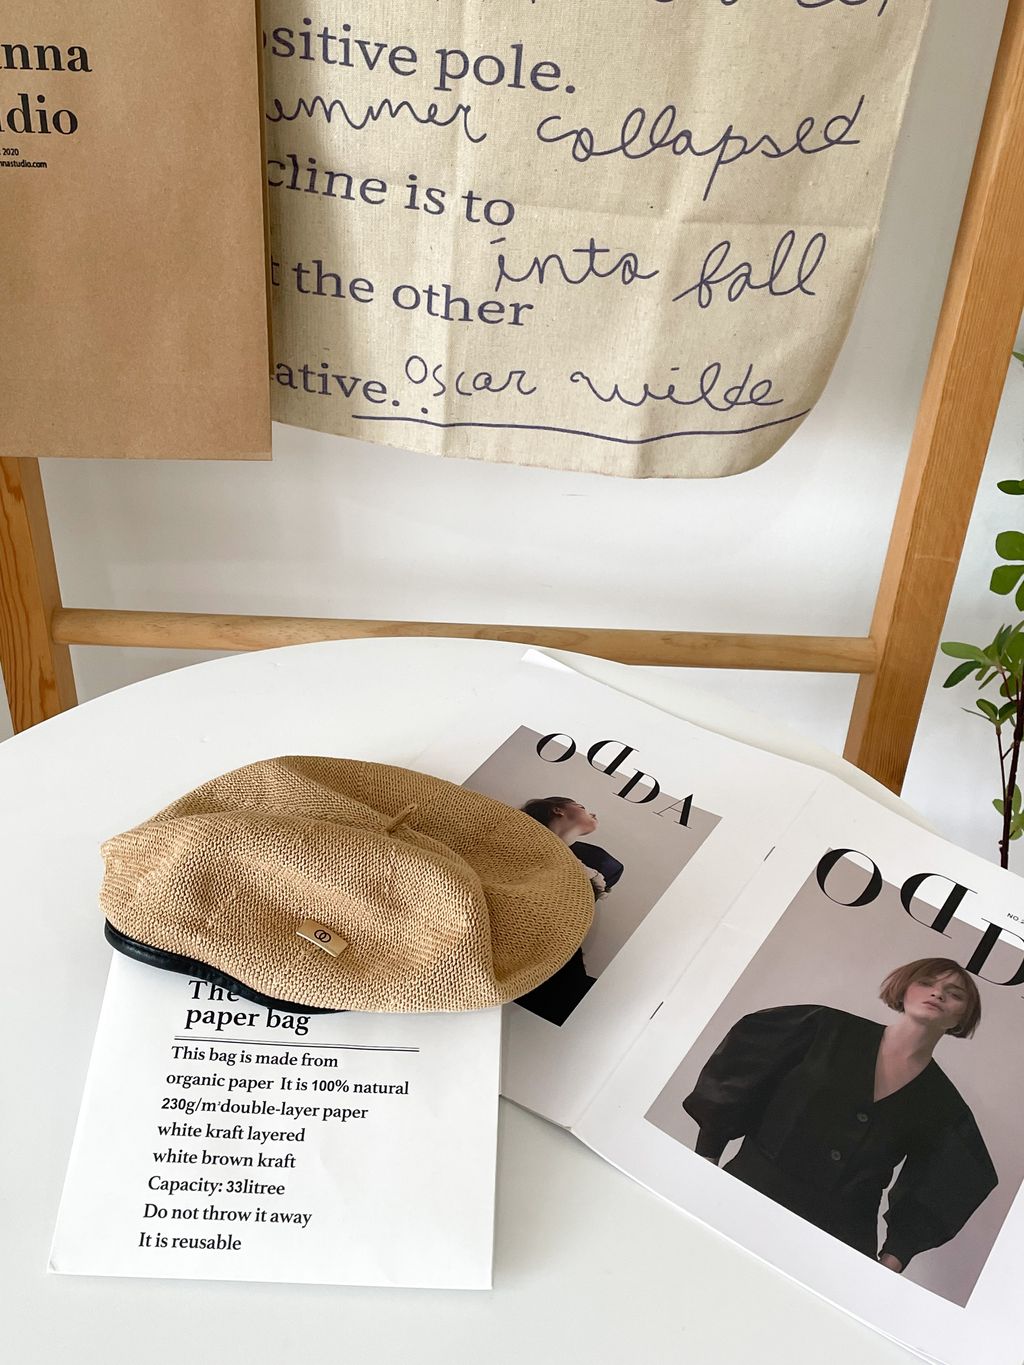 sitive pole.
summer collapsed
cline is to
into fall
t the other
ative. Oscar Wilde
nna
dio
2020
nnastudio.com
ODDA
ODD
NO
The
paper bag
This bag is made from
organic paper It is 100% natural
230g/m² double-layer paper
white kraft layered
white brown kraft
Capacity: 33litree
Do not throw it away
It is reusable